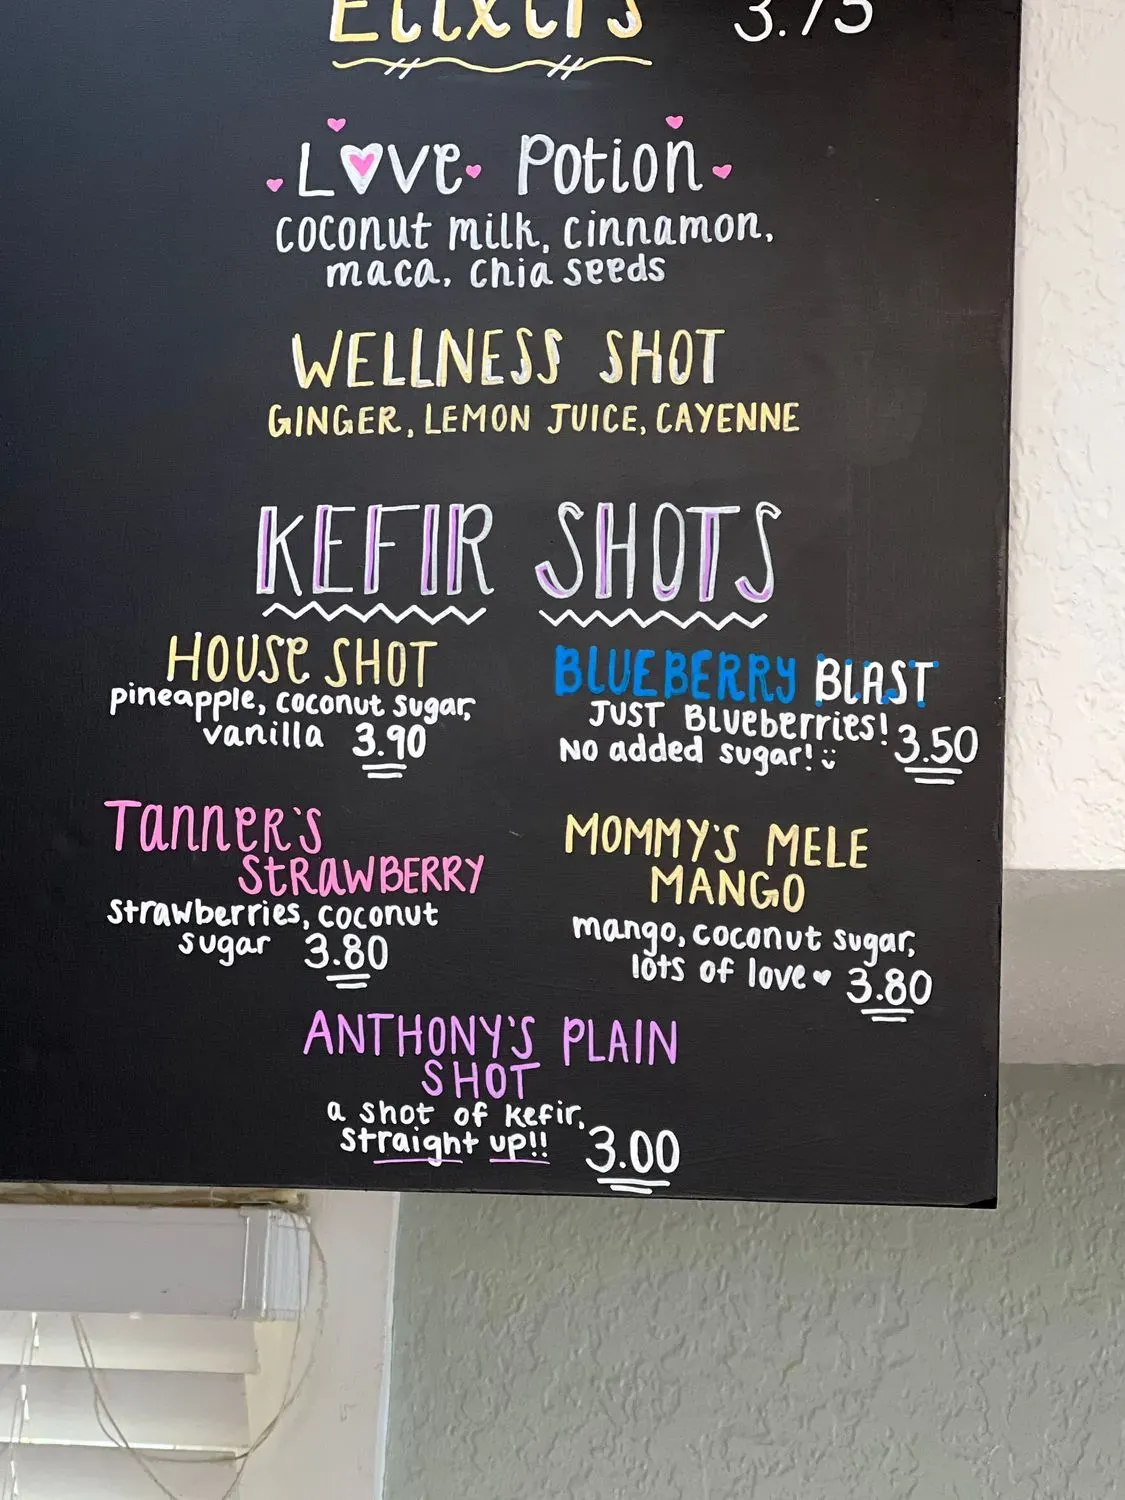 Elixirs 3.75
Love Potion
coconut milk, cinnamon,
maca, chia seeds
WELLNESS SHOT
GINGER, LEMON JUICE, CAYENNE
KEFIR SHOTS
HOUSE SHOT
pineapple, coconut sugar,
vanilla 3.90
BLUEBERRY BLAST
JUST BLueberries!
No added sugar! 3.50
TanneR's
StRaWBERRY
strawberries, coconut
sugar 3.80
MOMMY'S MELE
MANGO
mango, coconut sugar,
lots of love ♥ 3.80
ANTHONY'S PLAIN
SHOT
a shot of kefir,
straight up!! 3.00